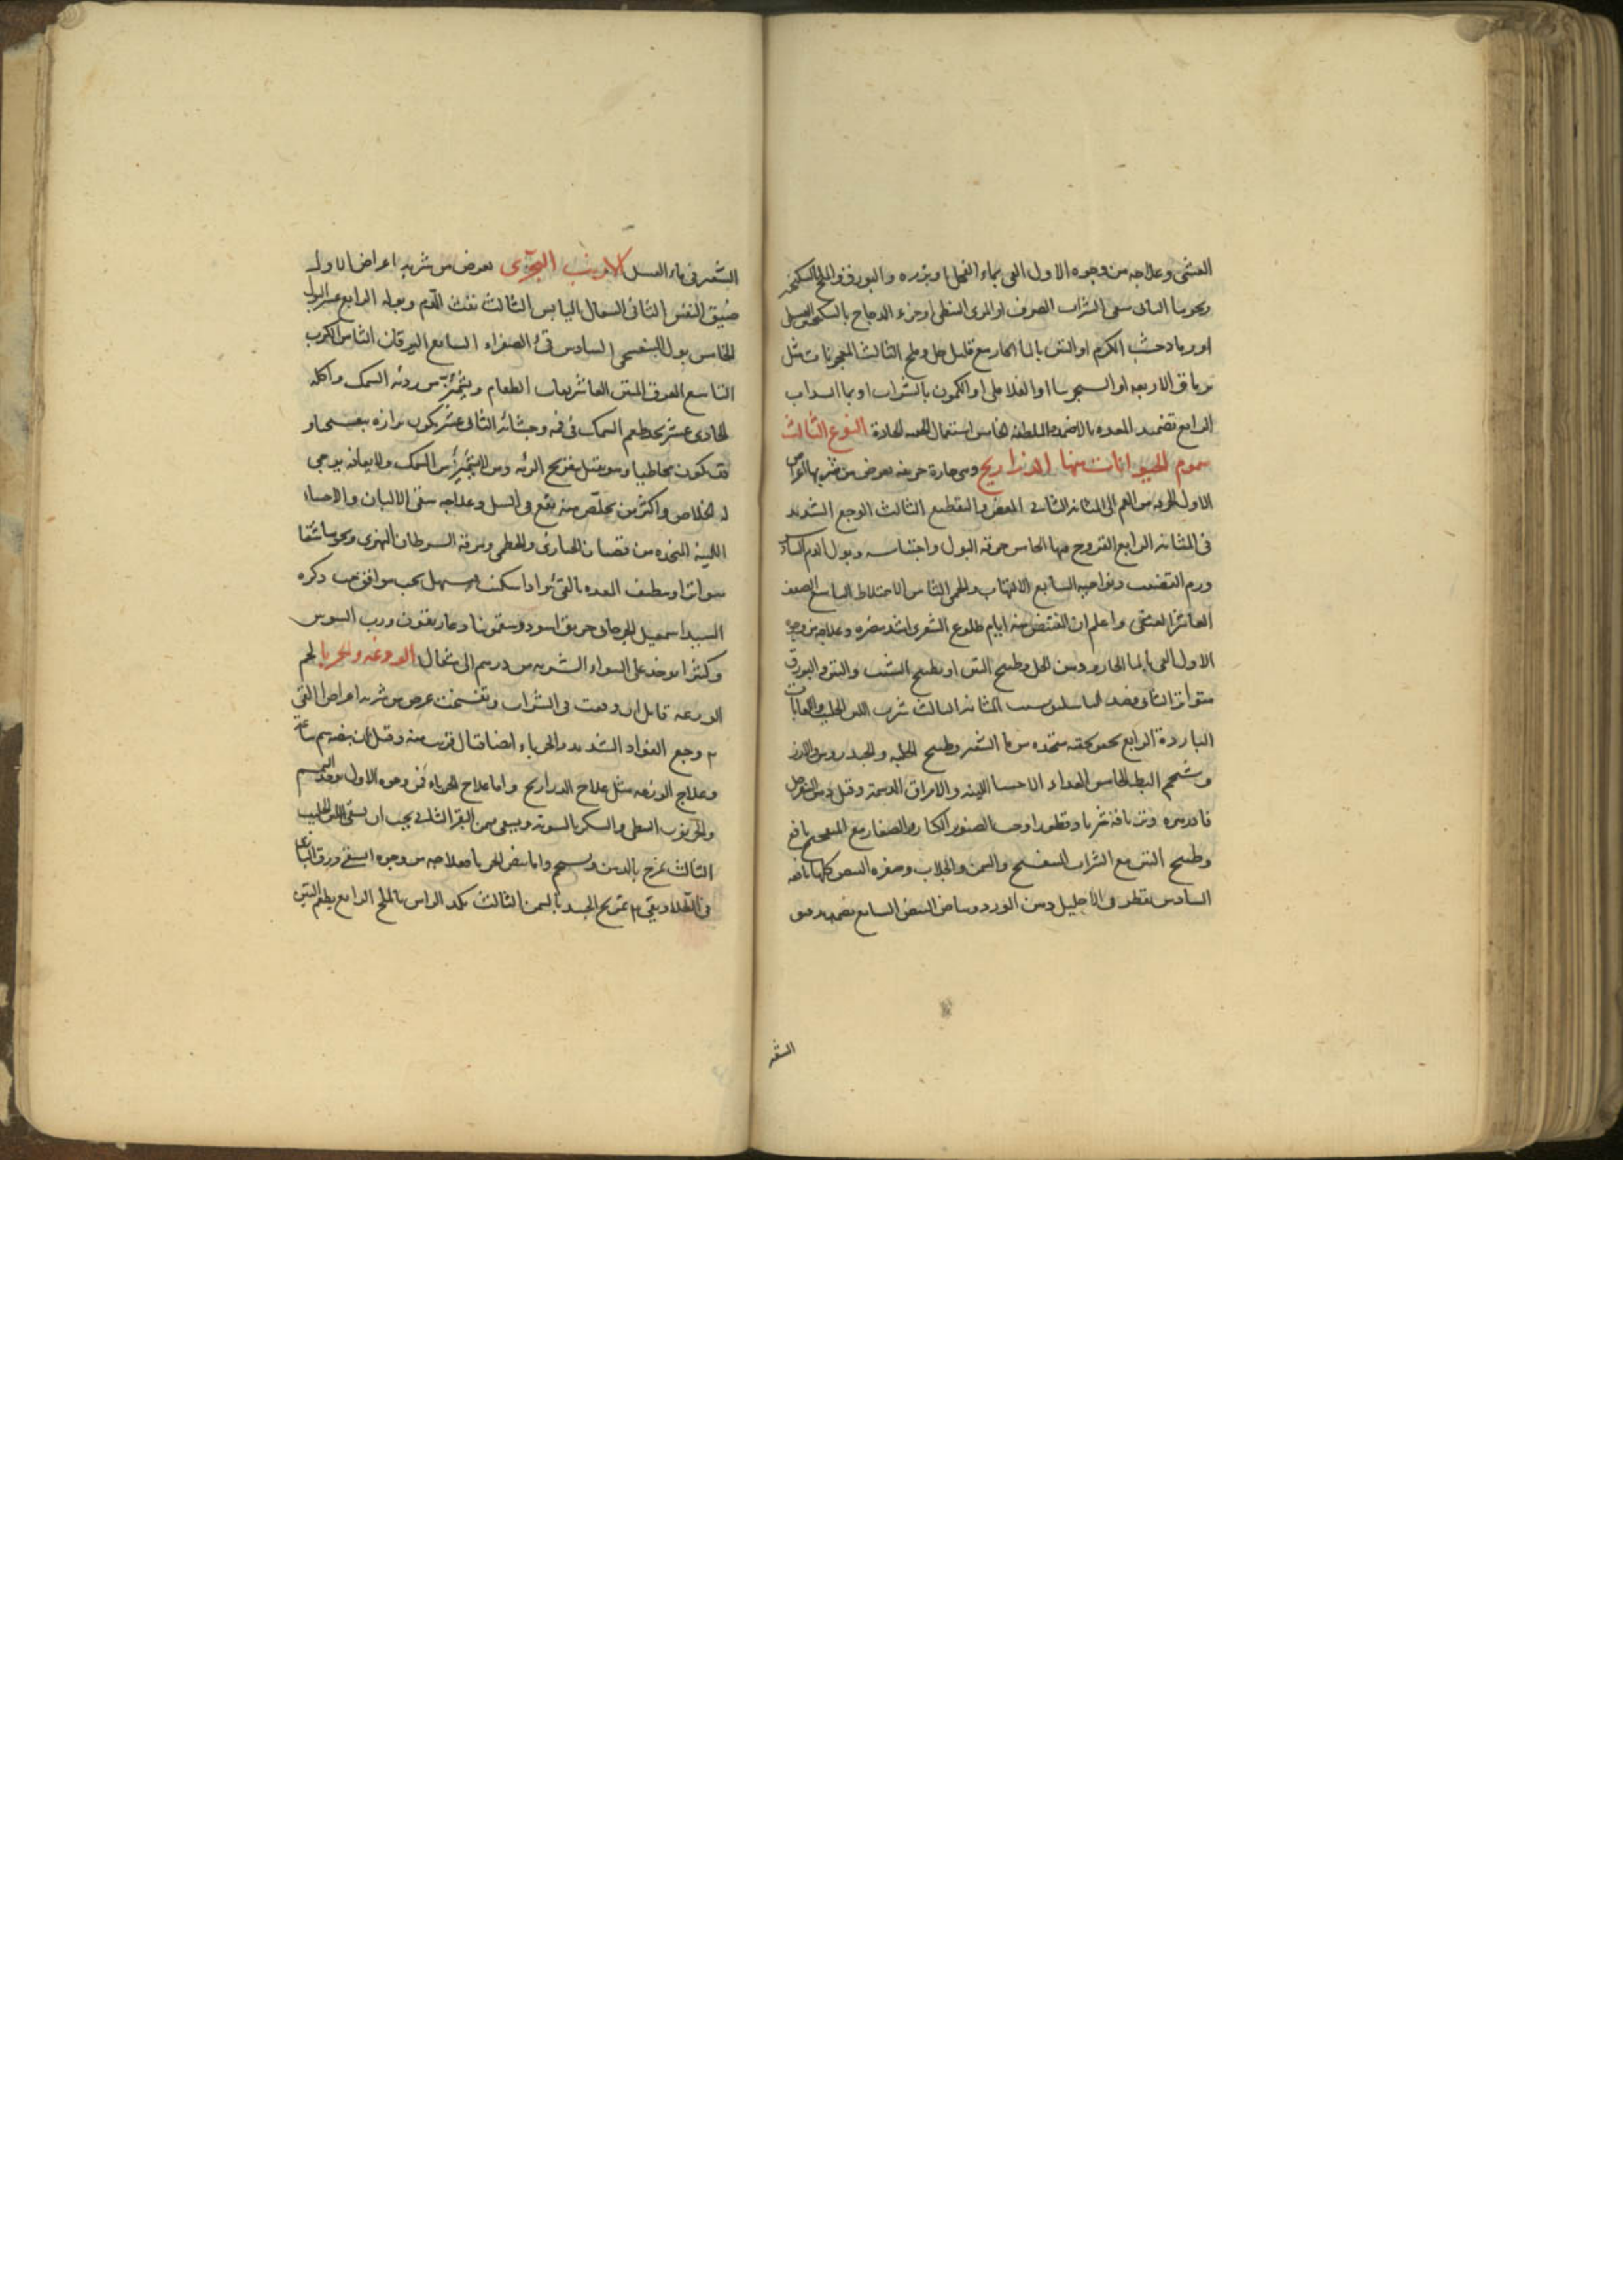 الغشى وعلاجه من وجوه الاول القى بماء الفجل او بزره والبورق والملح والسكنجبين
ونحوها الثانى سقى الشراب الصرف او المرى النبطى او خرء الدجاج بالسكنجبين العسلى
او رماد خشب الكرم او التين بالماء الحار مع قليل خل وملح الثالث المعجونات مثل
ترياق الاربعه او السجرينا او الفلافلى او الكمون بالشراب او بماء السداب
الرابع تضميد المعده بالاضمدة الملطفه الخامس استعمال الحقنه الحادة النوع الثالث
سموم الحيوانات منها الذراريح وهى حارة حريفه يعرض من شربها اعراض
الاول الحرقه من الفم الى المثانه الثانى المغص والتقطيع الثالث الوجع الشديد
فى المثانه الرابع القروح فيها الخامس حرقة البول واحتباسه وبول الدم السادس
ورم القضيب ونواحيه السابع الالتهاب والحمى الثامن الاختلاط التاسع الضعف
العاشر الغشى واعلم ان القبض منه ايام طلوع الشعرى اشد مضره وعلاجه من وجوه
الاول القى بالماء الحار ودهن الحل وطبيخ التين او بطبيخ الشبت والتين والبورق
متواترا الثانى فصد الباسليق بسبب المثانه الثالث شرب اللبن الحليب واللعابات
الباردة الرابع يحقن بحقنه متخذه من ماء الشعير وطبيخ الحلبه والجندروس والارز
وشحم البط الخامس الغداء الاحساء اللينه والامراق الدسمة وقيل دهن السفرجل
فادزهره وتريافه شربا وقطورا وحب الصنوبر الكبار والصغار مع المبفختج نافع
وطبيخ التين مع الشراب البنفسج والسمن والجلاب وصفره البيض كلها نافعه
السادس يقطر فى الاحليل دهن الورد وبياض البيض السابع يضمد بدقيق
الشع
الشعير فى ماء العسل الارنب البحرى يعرض من شربه اعراض الاول
ضيق النفس الثانى السعال اليابس الثالث نفث الدم وبوله الرابع عسر البول
الخامس بول البنفسجى السادس قئ الصفراء السابع اليرقان الثامن الكرب
التاسع العرق المنتن العاشر يعاف الطعام ويشمئز من رويه السمك واكله
الحادى عشر يجد طعم السمك فى فمه وجشائه الثانى عشر يكون برازه بنفسجيا و
قد يكون مخاطيا وهو يقتل بتقريح الرئه ومن لا يشمئز من السمك ولا يعافه يرجى
له الخلاص واكثر من تخلص منه يقع فى السل وعلاجه سقى الالبان والاحساء
اللينه المتخذه من قضبان الخبازى والخطمى ومرقة السرطان النهرى ونحوها سقيا
متواترا وينظف المعده بالقئ واذا سكنت يسهل بحب موافق حب ذكره
السيد اسمعيل الجرجانى خربق اسود وسقمونيا وغاريقون ورب السوس
وكثيرا يوخذ على السواء الشربه من درهم الى مثقال الوزغه والحربا لحم
الوزغه قاتل ان وقعت فى الشراب وتفسخت عرض من شربه اعراض ا القئ
٢ وجع الفواد الشديد والحرباء ايضا قتال قريب منه وقيل ان بيضه سم ساعة
وعلاج الوزغه مثل علاج الذراريح واما علاج الحرباء فمن وجوه الاول يوخذ السمسم
والخرنوب النبطى والسكر بالسويه ويسقى بسمن البقر الثانى يجب ان يسقى اللبن الحليب
الثالث يمرخ بالدهن ويستحم واما بيض الحربا فعلاجه من وجوه ا يسقى ذرق البازى
فى الطلا ويقئ ٢ تمريخ الجسد بالسمن الثالث يكمد الراس بالملح الرابع يطعم التين